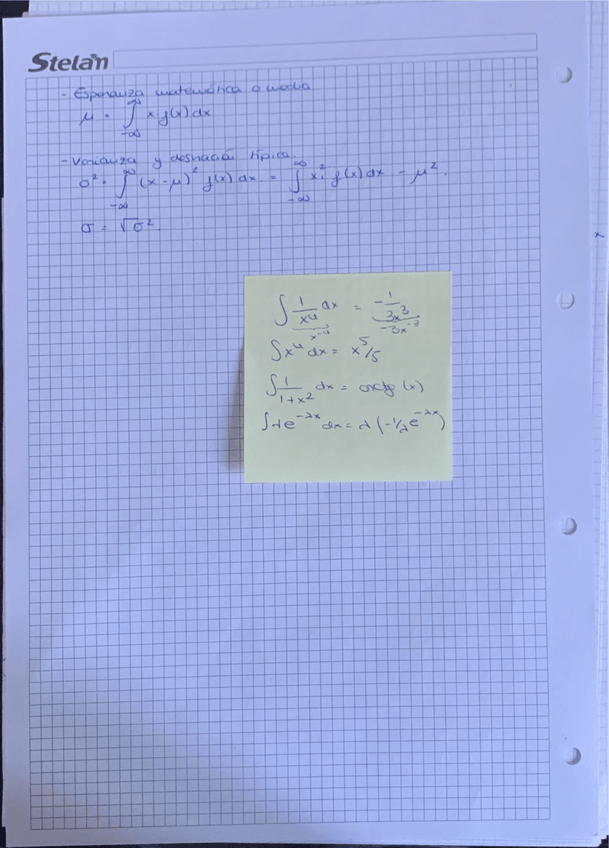 Stelan
- Esperanza matemática o media
μ = ∫_{-∞}^{∞} x f(x) dx
- Varianza y desviación típica
σ² = ∫_{-∞}^{∞} (x - μ)² f(x) dx = ∫_{-∞}^{∞} xᵢ² f(x) dx - μ².
σ = √σ².
∫ 1/x⁴ dx = -1/3x³
x⁻⁴ -3x⁻³
∫x⁴ dx = x⁵/5
∫ 1/1+x² dx = arctg (x)
∫λe^{-λx} dx = λ(-1/λ e^{-λx})